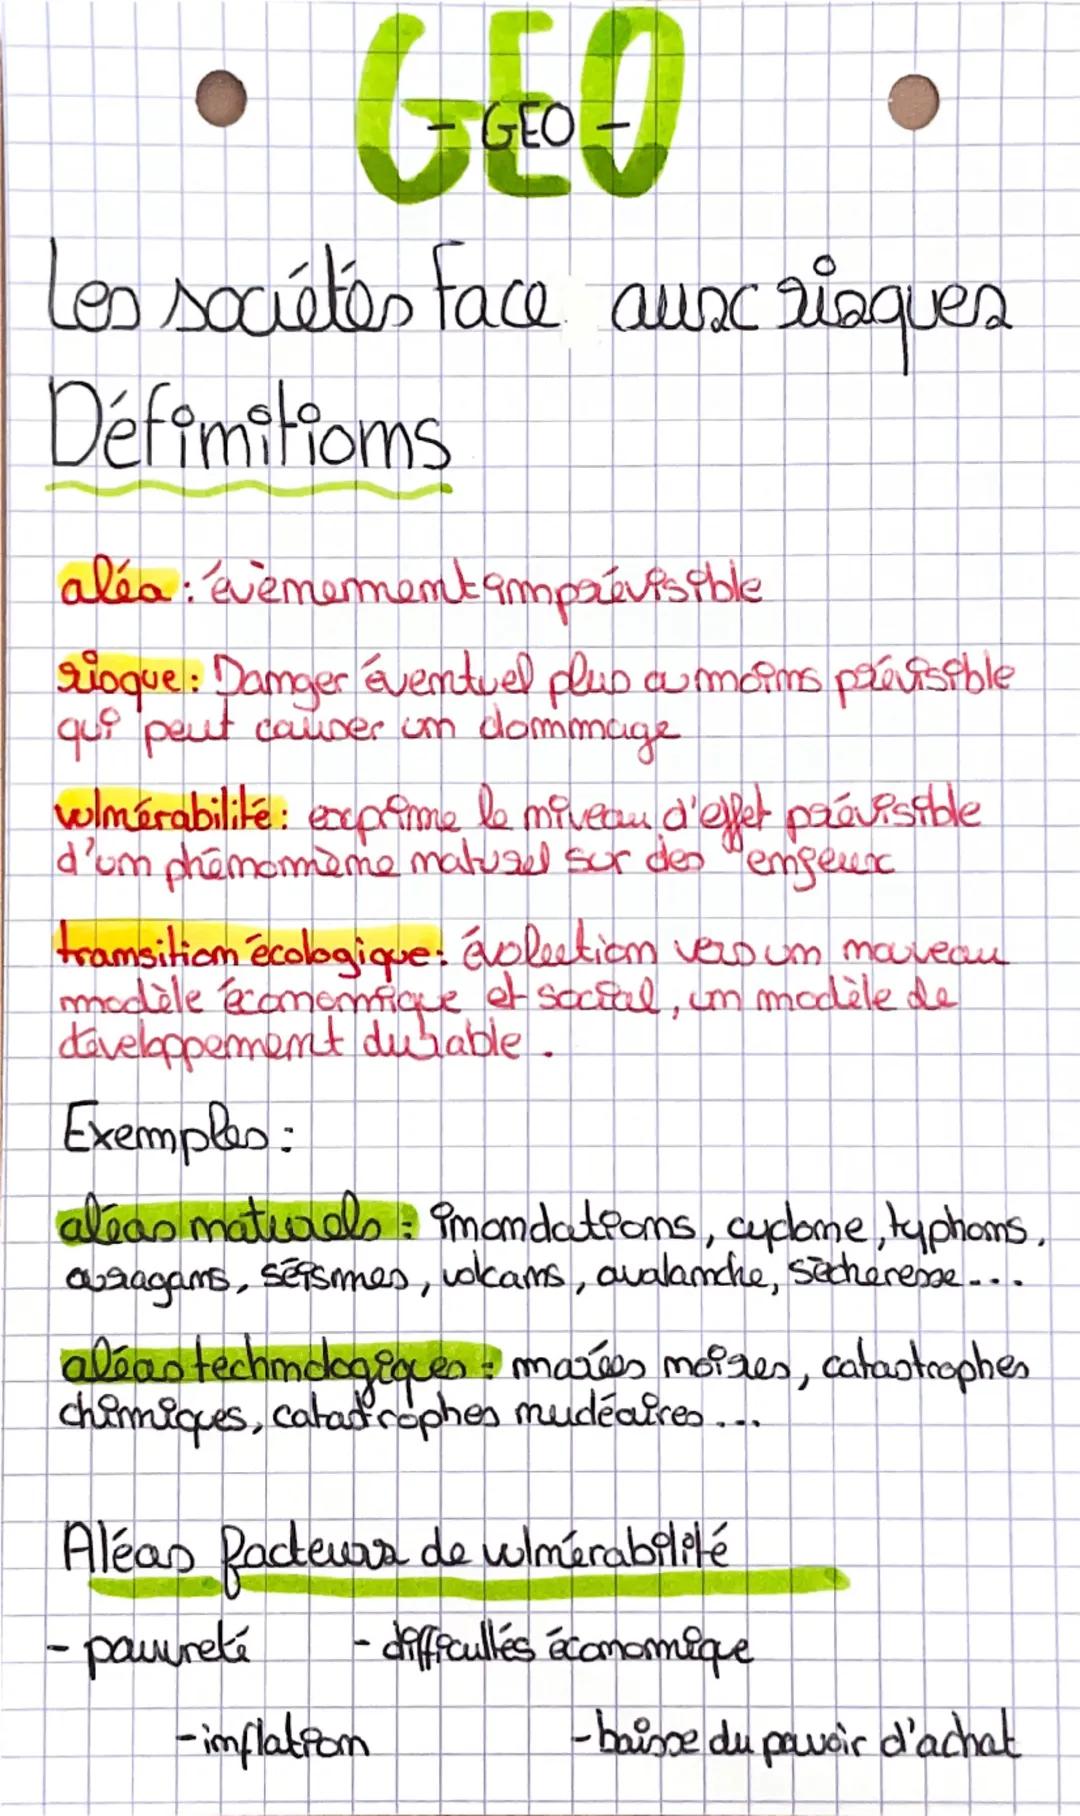 GEO
- GEO -
Les sociétés face aux risques
Définitions
aléa : évènemennent imprévisible
risque : Danger éventuel plus ou moins prévisible
qui peut causer un dommage
vulnérabilité : exprime le niveau d'effet prévisible
d'un phénomène naturel sur des "enjeux
transition écologique : évolution vers un nouveau
modèle économique et social, un modèle de
développement durable .
Exemples :
aléas naturels : inondations, cyclone, typhons,
ouragans, séismes, volcans, avalanche, sècheresse...
aléas technologiques : marées noires, catastrophes
chimiques, catastrophes nucléaires...
Aléas facteurs de vulnérabilité
- pauvreté - difficultés économique
- inflation - baisse du pouvoir d'achat